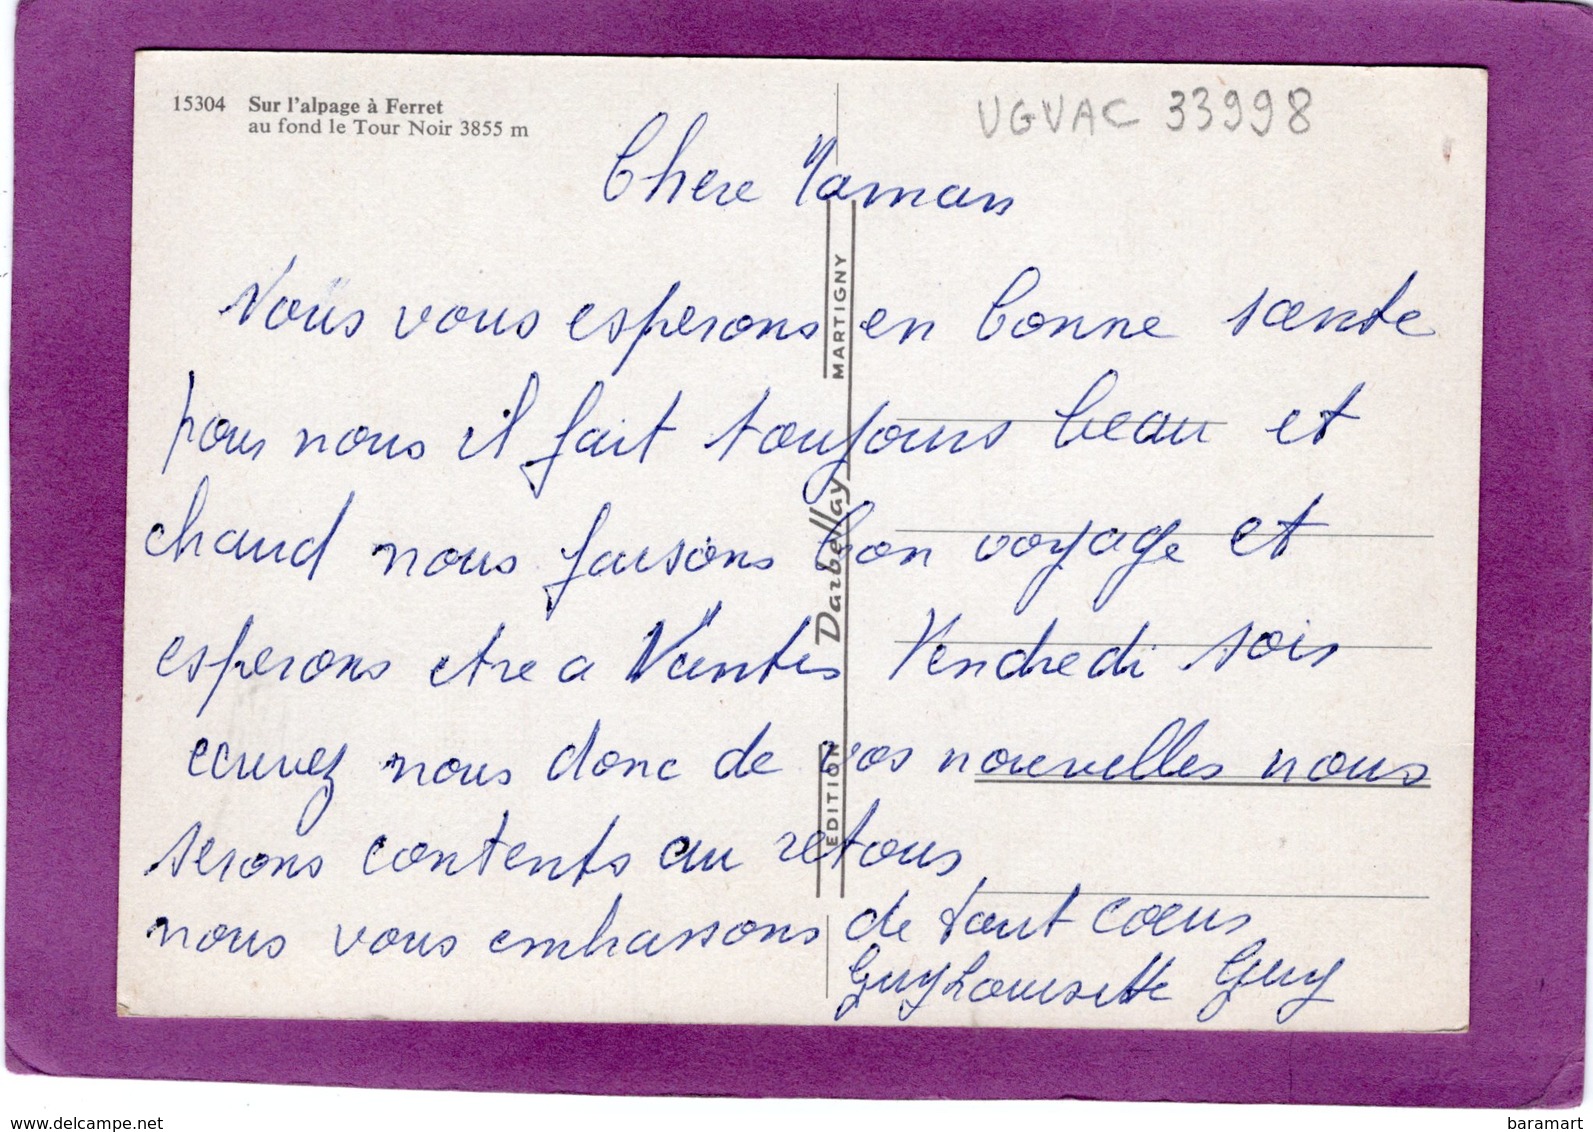 15304 Sur l'alpage à Ferret
au fond le Tour Noir 3855 m
UGVAC 33998
Chere Maman
Nous vous esperons en bonne sante
pour nous il fait toujours beau et
chaud nous faisons bon voyage et
esperons etre a Nantes Vendredi soir
ecrivez nous donc de vos nouvelles nous
serons contents au retour
nous vous embrassons de tout coeur
Guy Lousette Guy
EDITION Darbellay MARTIGNY
www.delcampe.net
baramart